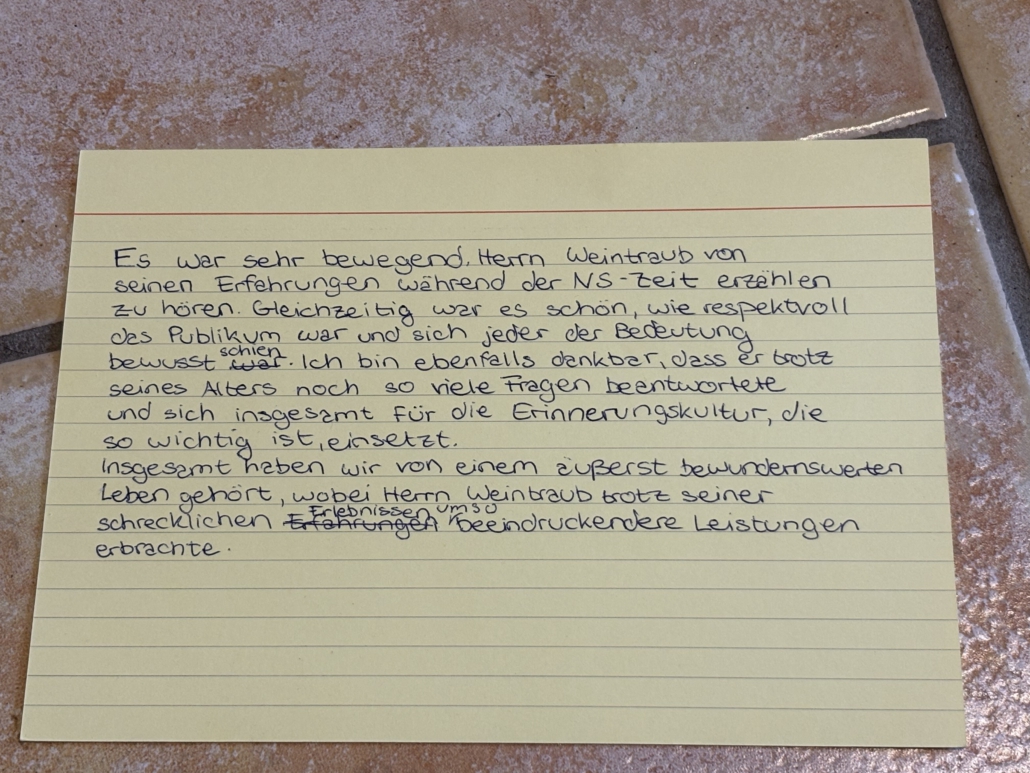 Es war sehr bewegend, Herrn Weintraub von
seinen Erfahrungen während der NS-Zeit erzählen
zu hören. Gleichzeitig war es schön, wie respektvoll
das Publikum war und sich jeder der Bedeutung
bewusst war schien. Ich bin ebenfalls dankbar, dass er trotz
seines Alters noch so viele Fragen beantwortete
und sich insgesamt für die Erinnerungskultur, die
so wichtig ist, einsetzt.
Insgesamt haben wir von einem äußerst bewundernswerten
Leben gehört, wobei Herrn Weintraub trotz seiner
schrecklichen Erfahrungen Erlebnissen umso beeindruckendere Leistungen
erbrachte.